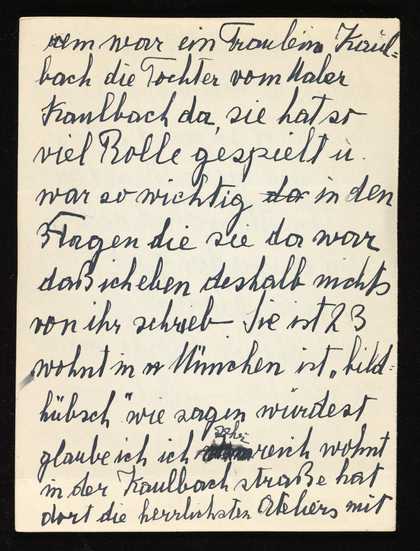 em war ein Fraulein Kaul=
bach die Tochter vom Maler
Kaulbach da, sie hat so
viel Rolle gespielt u.
war so wichtig da in den
3 Tagen die sie da war
daß ich eben deshalb nichts
von ihr schrieb Sie ist 23
wohnt in München ist „bild=
hübsch" wie sagen würdest
glaube ich ich sehr reich wohnt
in der Kaulbachstraße hat
dort die herrlichsten Ateliers mit